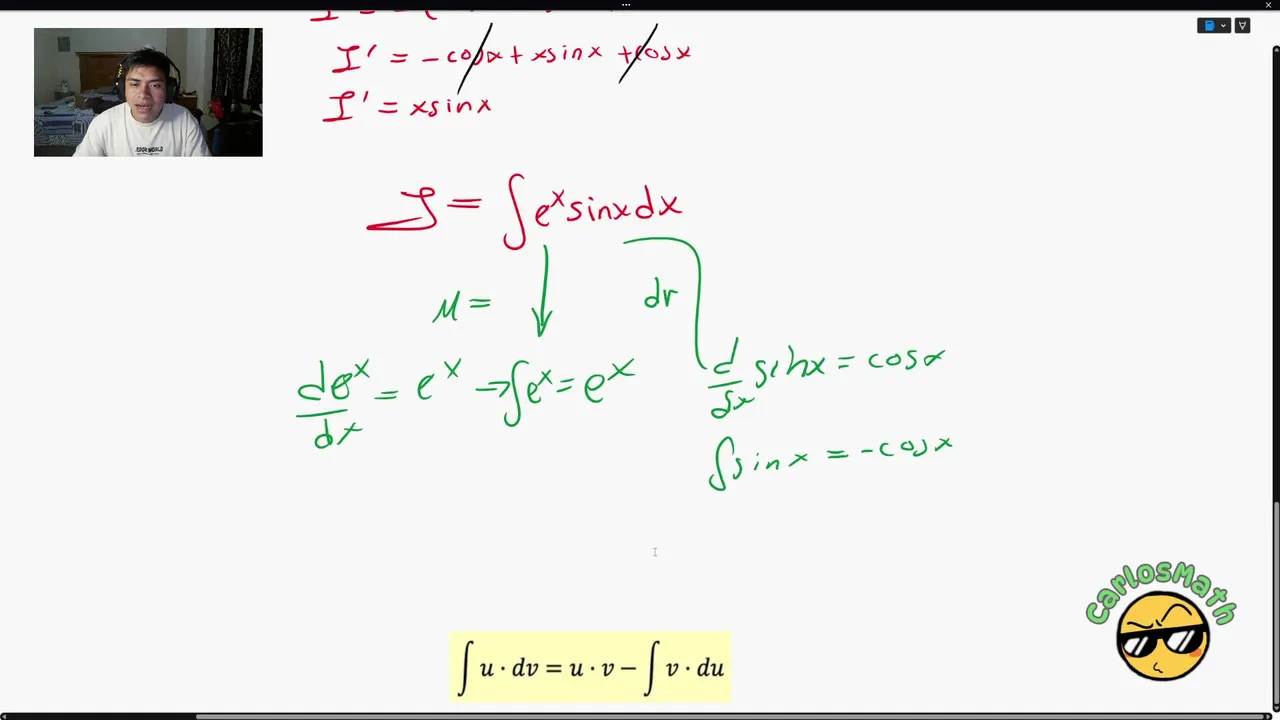 I' = -cosx + xsinx + cosx
I' = xsinx
I = ∫e^x sinx dx
u =
dv
de^x/dx = e^x → ∫e^x = e^x
d/dx sinx = cosx
∫sinx = -cosx
CarlosMath
∫ u · dv = u · v − ∫ v · du